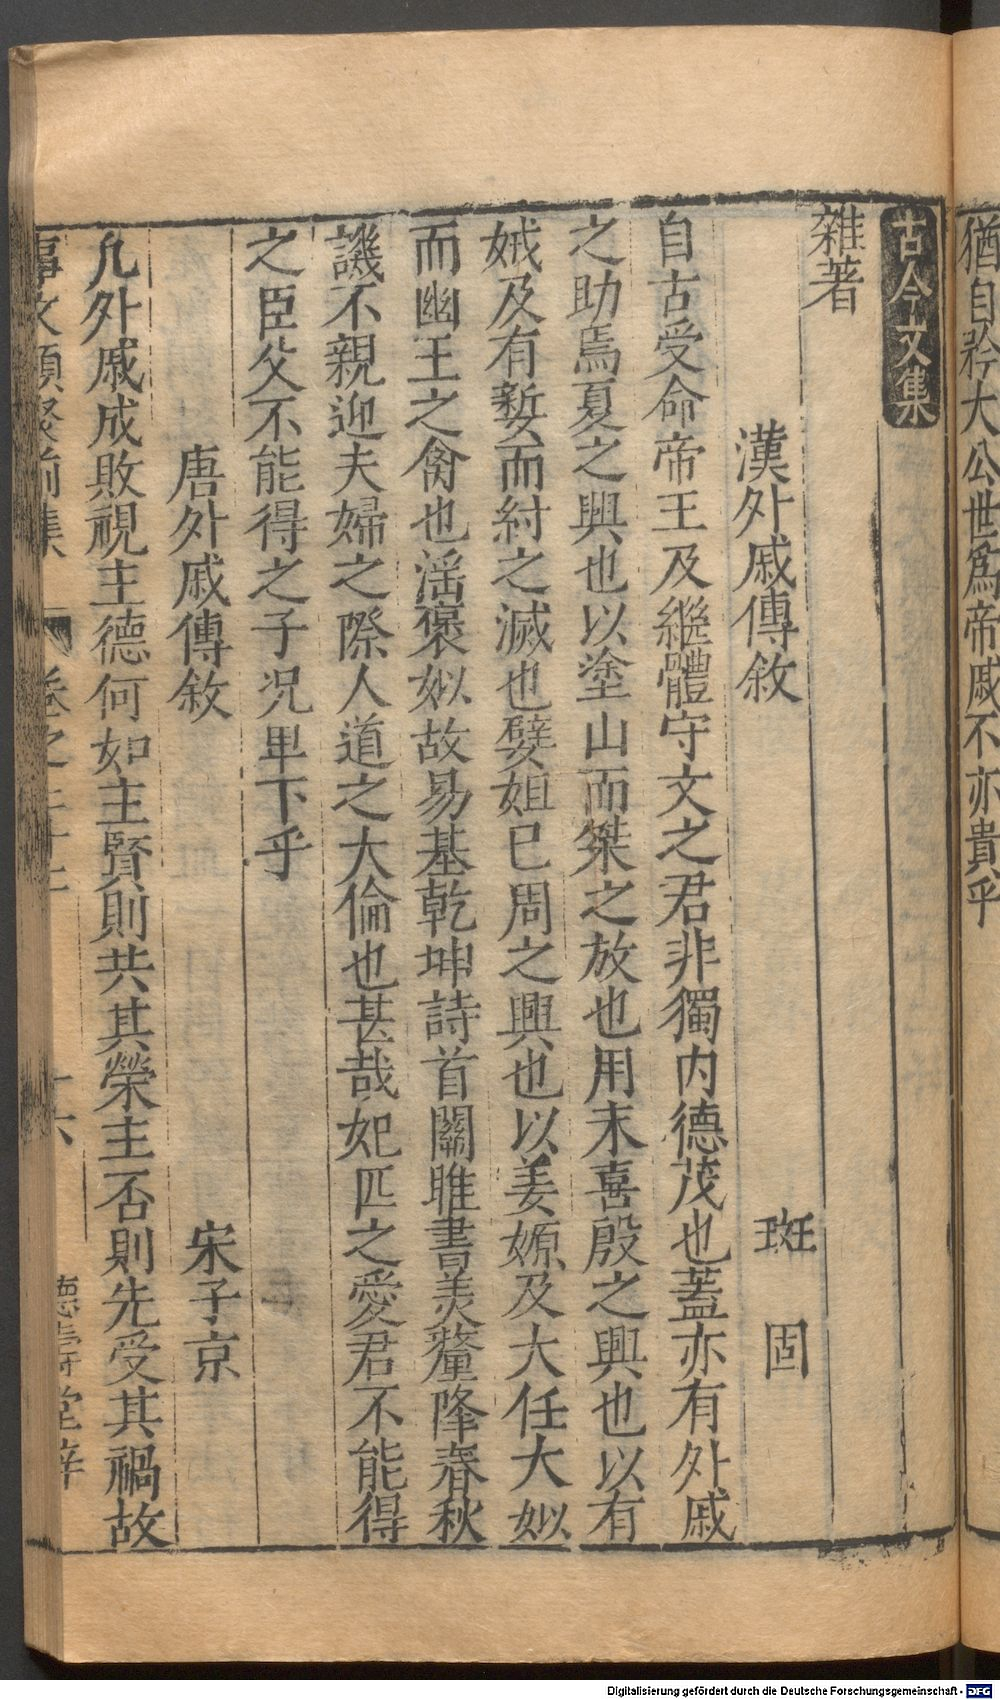 猶自矜大公世爲帝戚不亦貴乎
古今文集
雜著
漢外戚傳敘　班固
自古受命帝王及繼體守文之君非獨内德茂也蓋亦有外戚
之助焉夏之興也以塗山而桀之放也用末喜殷之興也以有
娀及有㜪而紂之滅也嬖妲已周之興也以姜嫄及大任大姒
而幽王之禽也滛褒姒故易基乾坤詩首關雎書美釐降春秋
譏不親迎夫婦之際人道之大倫也甚哉妃匹之愛君不能得
之臣父不能得之子况卑下乎
唐外戚傳敘　宋子京
凡外戚成敗視主德何如主賢則共其榮主否則先受其禍故
事文類聚前集　卷之二十二　十六　德壽堂梓
Digitalisierung gefördert durch die Deutsche Forschungsgemeinschaft - DFG